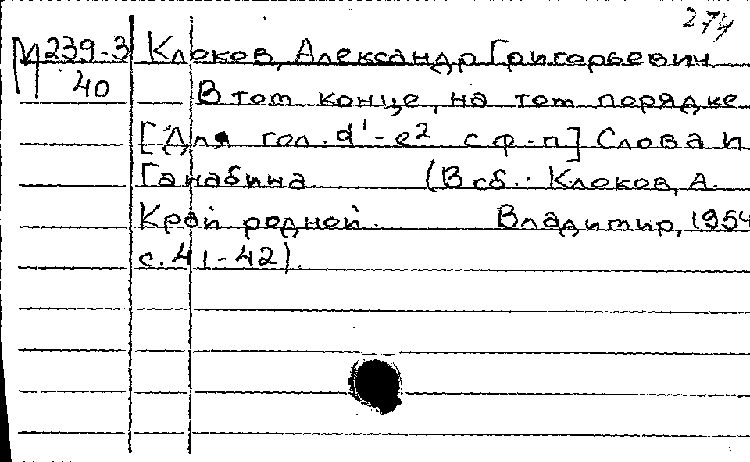 274
М 239-3 Клоков, Александр Григорьевич
40 В том конце, на том порядке
[Для гол. d¹-e² с ф-п] Слова И
Ганабина (В сб.: Клоков, А.
Край родной. Владимир, 1954
с. 41-42).